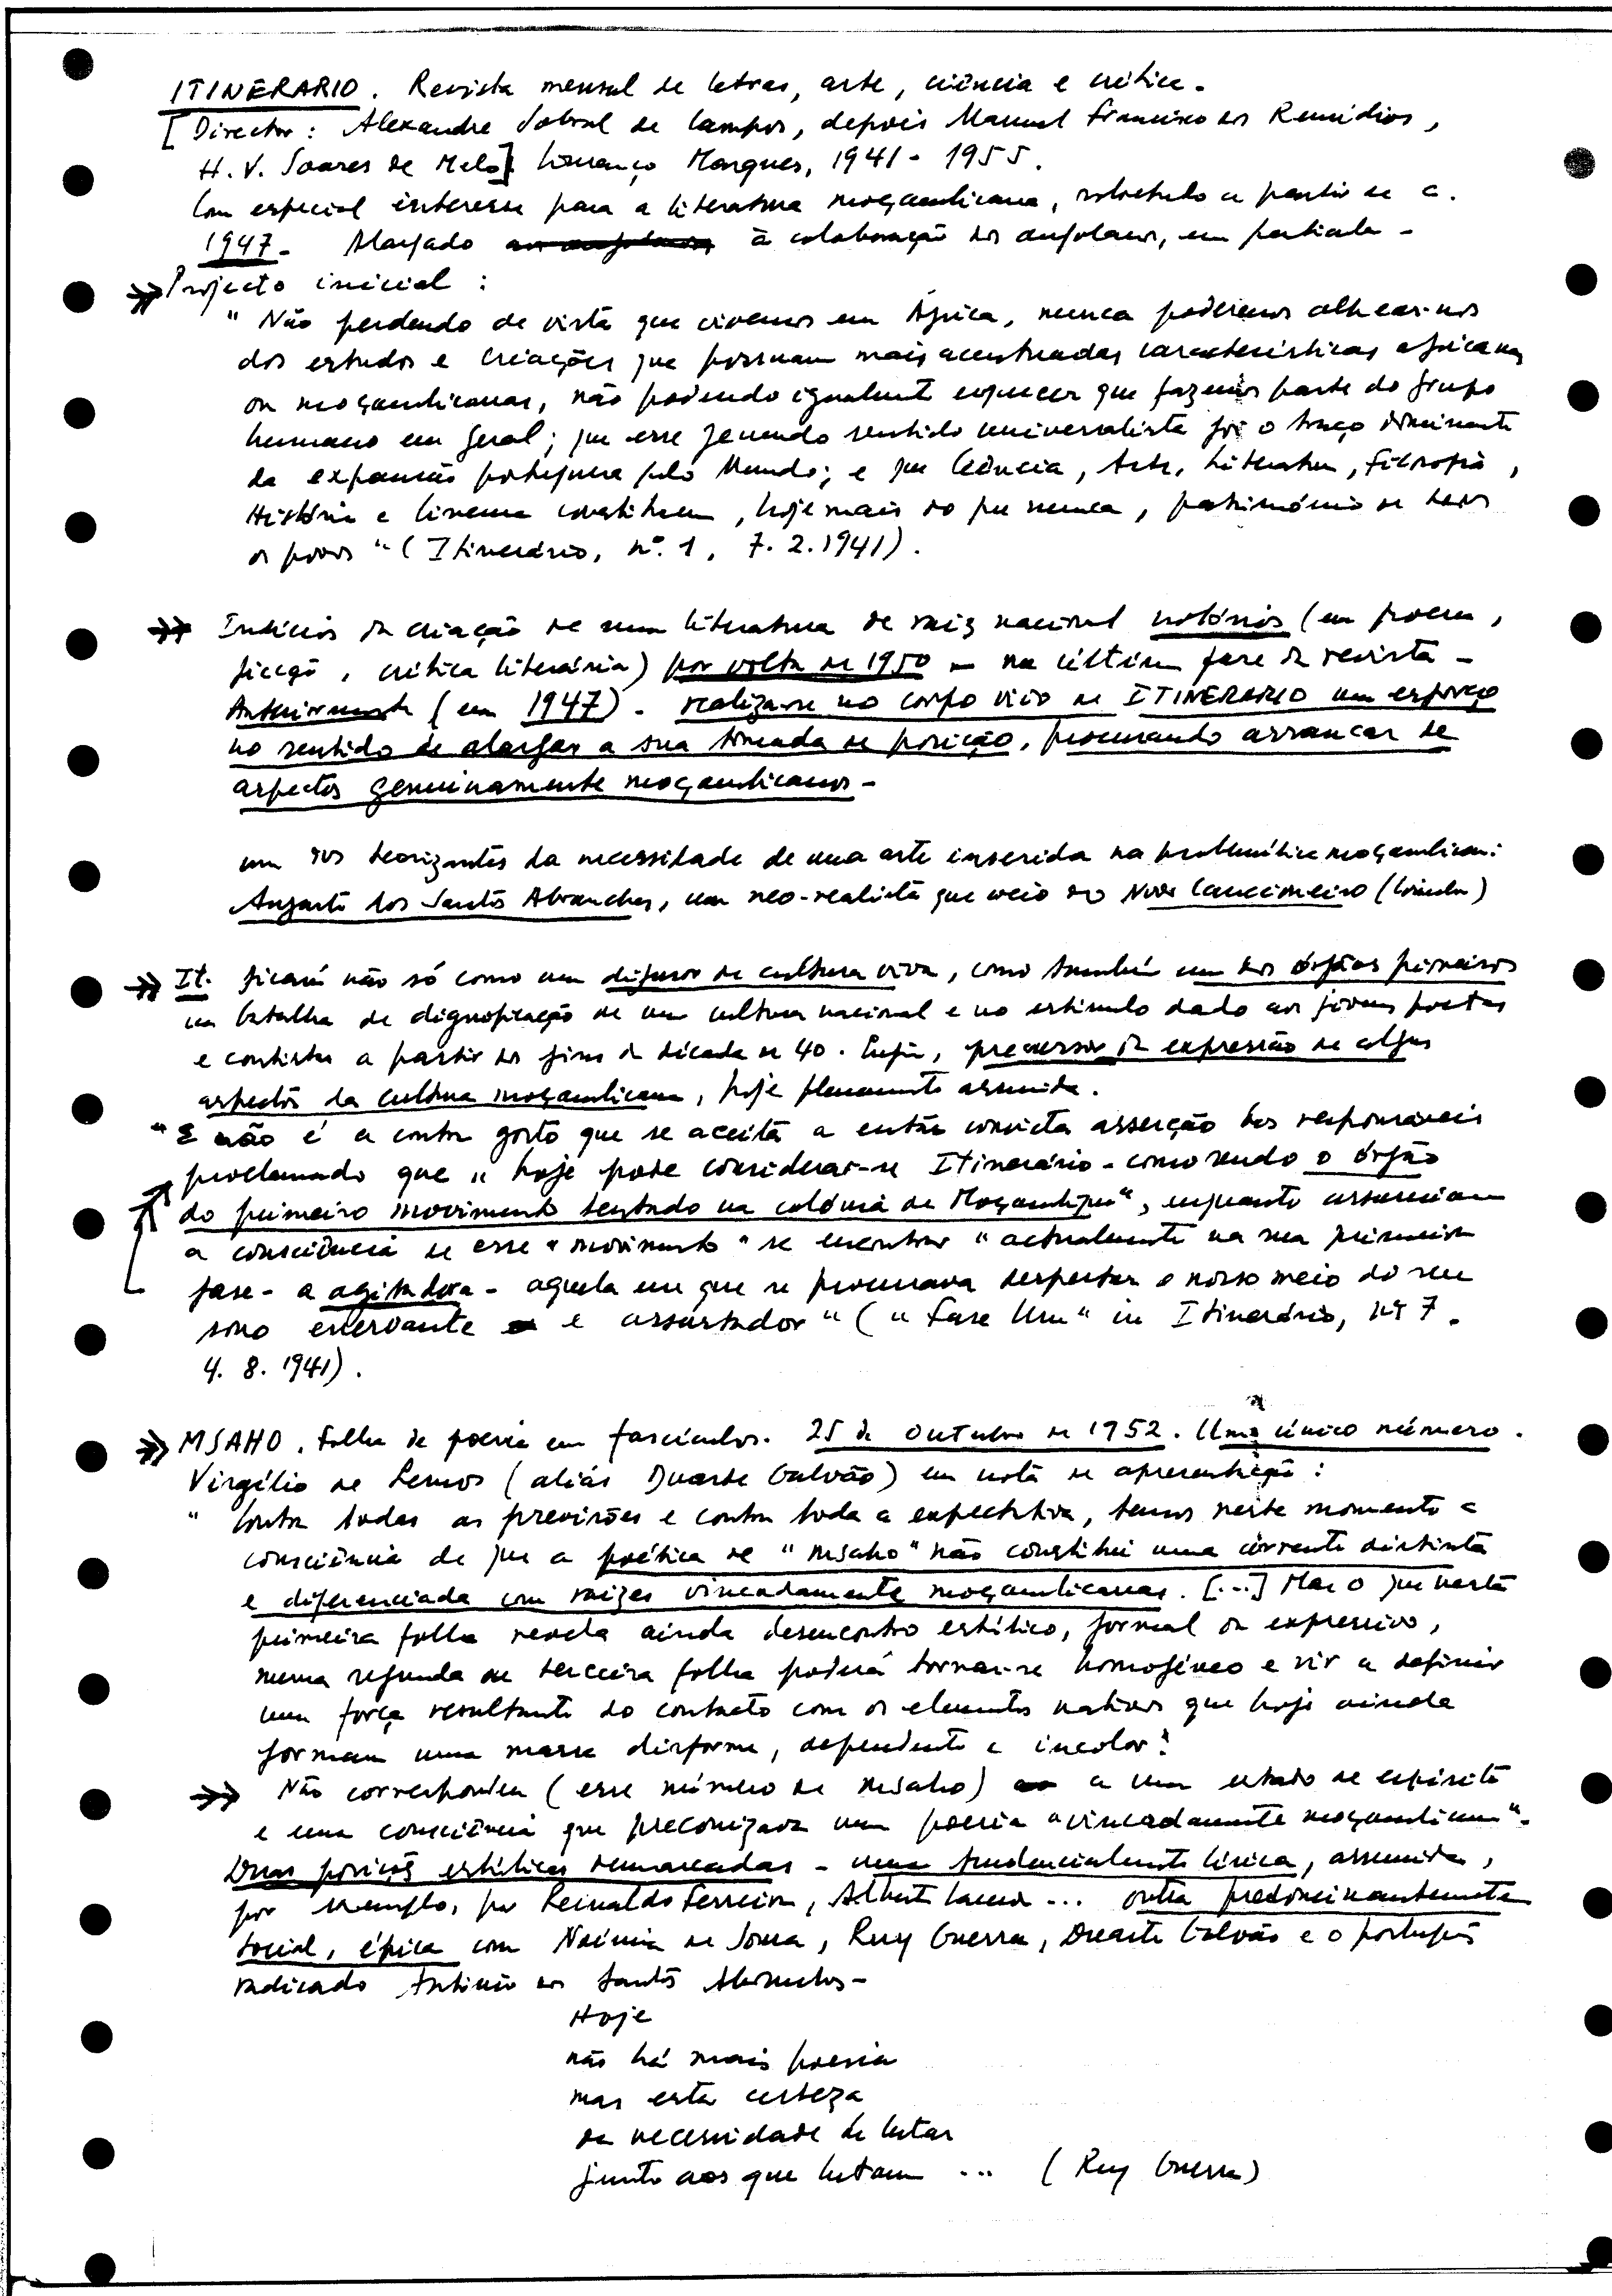 ITINERARIO. Revista mensal de letras, arte, ciência e crítica.
[Director: Alexandre Sobral de Campos, depois Manuel Francisco dos Remédios,
H. V. Soares de Melo]. Lourenço Marques, 1941 - 1955.
Com especial interesse para a literatura moçambicana, sobretudo a partir de c.
1947. Alargado à colaboração dos angolanos, em particular.
Projecto inicial:
" Não perdendo de vista que vivemos em África, nunca poderemos alhear-nos
dos estudos e criações que possuam mais acentuadas características africanas
ou moçambicanas, não podendo igualmente esquecer que fazemos parte do grupo
humano em geral; que esse fecundo sentido universalista foi o traço dominante
da expansão portuguesa pelo Mundo; e que Ciência, Arte, Literatura, Filosofia,
História e Cinema constituem, hoje mais do que nunca, património de todos
os povos " (Itinerário, nº. 1, 7. 2. 1941).
Indícios da criação de uma literatura de raiz nacional notórios (em poema,
ficção, crítica literária) por volta de 1950 - na última fase da revista -
Anteriormente (em 1947). realiza-se no corpo vivo de ITINERARIO um esforço
no sentido de alargar a sua tomada de posição, procurando arrancar de
aspectos genuinamente moçambicanos -
um dos teorizantes da necessidade de uma arte inserida na problemática moçambicana:
Augusto dos Santos Abranches, um neo-realista que veio do Novo Cancioneiro (Coimbra)
It. ficará não só como um difusor de cultura viva, como também um dos órgãos pioneiros
na batalha de dignificação de uma cultura nacional e no estímulo dado aos jovens poetas
e contistas a partir dos fins da década de 40. Enfim, precursor da expressão de alguns
aspectos da cultura moçambicana, hoje plenamente assumida.
" E não é a contra gosto que se aceita a então convicta asserção dos responsáveis
proclamado que " hoje pode considerar-se Itinerário - como sendo o órgão
do primeiro movimento tentado na colónia de Moçambique", enquanto assumiam
a consciência de esse " movimento " se encontrar " actualmente na sua primeira
fase - a agitadora - aquela em que se procurava despertar o nosso meio do seu
sono enervante e assustador " ( " Fase Um " in Itinerário, nº 7.
4. 8. 1941).
MSAHO. Folha de poesia em fascículos. 25 de Outubro de 1952. Um único número.
Virgílio de Lemos (aliás Duarte Galvão) em nota de apresentação:
" Contra todas as previsões e contra toda a expectativa, temos neste momento a
consciência de que a poética de " msaho " não constitui uma corrente distinta
e diferenciada com raízes vincadamente moçambicanas. [...] Mas o que nesta
primeira folha revela ainda desencontro estético, formal ou expressivo,
numa segunda ou terceira folha poderá tornar-se homogéneo e vir a definir
uma força resultante do contacto com os elementos nativos que hoje ainda
formam uma massa disforme, dependente e incolor".
Não correspondeu (esse número de msaho) a um estado de espírito
e uma consciência que preconizava uma poesia "vincadamente moçambicana".
Duas posições estéticas demarcadas - uma tendencialmente lírica, assumida,
por exemplo, por Reinaldo Ferreira, Alberto Lacerda ... outra predominantemente
social, épica com Noémia de Sousa, Ruy Guerra, Duarte Galvão e o português
radicado António dos Santos Abranches -
Hoje
não há mais poesia
mas esta certeza
da necessidade de lutar
junto aos que lutam ... (Ruy Guerra)